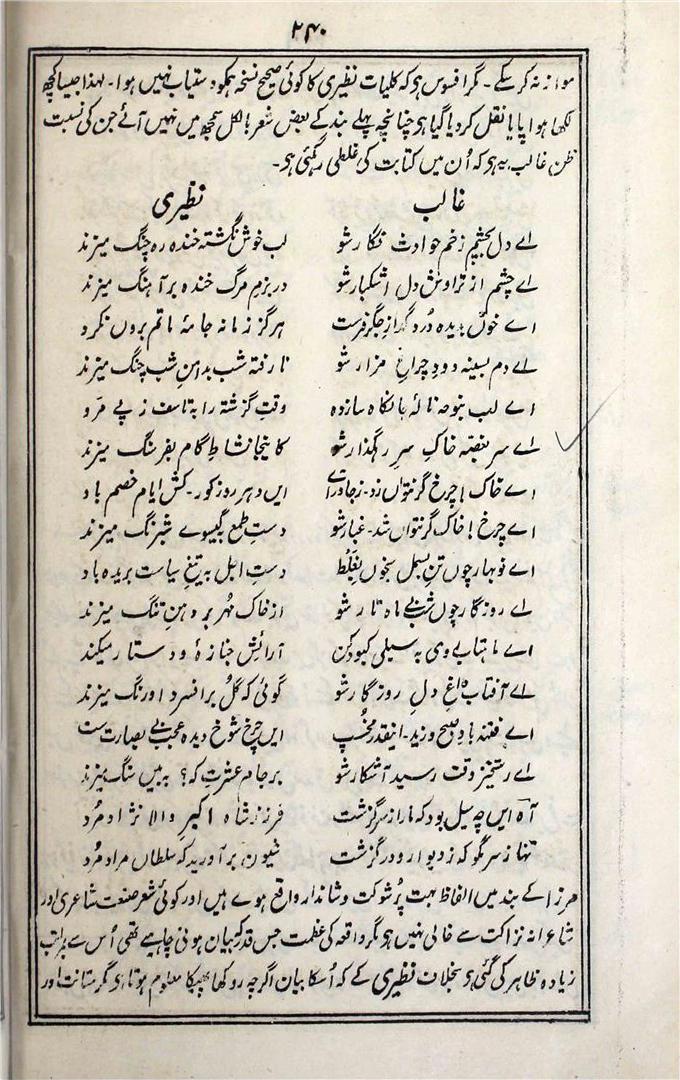 ۲۴۰
موازنہ کر سکے ۔ مگر افسوس ہو کہ کلیات نظیری کا کوئی صحیح نسخہ ہمکو دستیاب نہیں ہوا ۔ لہذا جیسا کچھ
لکھا ہوا پایا نقل کر دیا گیا ہو چنانچہ پہلے بند کے بعض شعر بالکل سمجھ میں نہیں آئے جن کی نسبت
ظن غالب یہ ہو کہ اُن میں کتابت کی غلطی رہ گئی ہو ۔
غالب نظیری
اے دل بچشم زخم حوادث نگار شو لب خوش نگشتہ خندہ رہ چنگ میزند
اے چشم از تراوش دل اشکبار شو در بزم مرگ خندہ بر آہنگ میزند
اے خوں بدیدہ درد گداز جگر فرست ہرگز زمانہ جامۂ ماتم بروں نکرد
اے دم بسینہ دود چراغِ مزار شو نا رفتہ شب بدامنِ شب چنگ میزند
اے لب بنوحہ نالۂ جانکاہ ساز دہ وقتِ گزشتہ را بہ تاسف ز پے مرو
اے سر بغصہ خاکِ سرِ رہگذار شو کاینجا نشاط گام بفرسنگ میزند
اے خاک! چرخ گر نتواں زد ۔ زجا درآے ایں دہر روز کور ۔ کش ایام خصم باد
اے چرخ! خاک گر نتواں شد ۔ غبار شو دستِ طمع بگیسوے شبرنگ میزند
اے نوبہار چوں تنِ بسمل بخوں بغلط دستِ اجل بہ تیغِ سیاست بریدہ باد
اے روزگار چوں شبِ بے ماہ تار شو از خاک مُہر بر دہنِ تنگ میزند
اے ماہتاب روی بہ سیلی کبود کن آرائشِ جنازۂ و دستار میکند
اے آفتاب داغِ دلِ روزگار شو گوئی کہ گُل بر افسر و اورنگ میزند
اے فتنہ باد صبح وزید ۔ اینقدر مخسپ ایں چرخ شوخ دیدہ عجب بے بصارت ست
اے رستخیز وقت رسید آشکار شو بر جامِ عشرتِ کہ؟ بہ بیں سنگ میزند
آہ ایں چہ سیل بود کہ ما را ز سر گزشت فرزندِ شاہ اکبرِ والا نژاد مُرد
تنہا ز سر مگو کہ ز دیوار و در گزشت شیون بر آورید کہ سلطاں مراد مُرد
مرزا کے بند میں الفاظ بہت پُر شوکت و شاندار واقع ہوے ہیں اور کوئی شعر صنعت شاعری اور
شاعرانہ نزاکت سے خالی نہیں ہو مگر واقعہ کی عظمت جس قدر کہ بیان ہونی چاہیے تھی اُس سے بمراتب
زیادہ ظاہر کی گئی ہو بخلاف نظیری کے کہ اُسکا بیان اگرچہ روکھا پھیکا معلوم ہوتا ہو مگر متانت اور